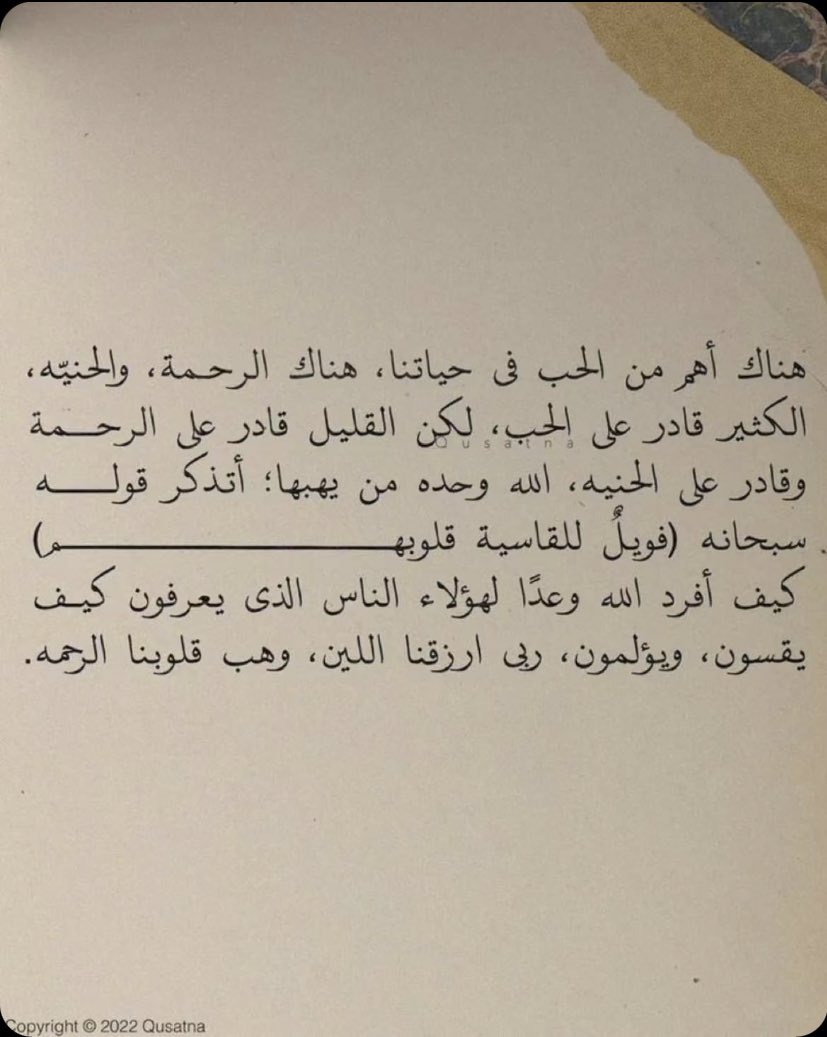 هناك أهم من الحب فى حياتنا، هناك الرحمة، والحنيّه،
الكثير قادر على الحب، لكن القليل قادر على الرحمة
Qusatna
وقادر على الحنيه، الله وحده من يهبها؛ أتذكر قوله
سبحانه (فويلٌ للقاسية قلوبهم)
كيف أفرد الله وعدًا لهؤلاء الناس الذى يعرفون كيف
يقسون، ويؤلمون، ربى ارزقنا اللين، وهب قلوبنا الرحمه.
Copyright © 2022 Qusatna